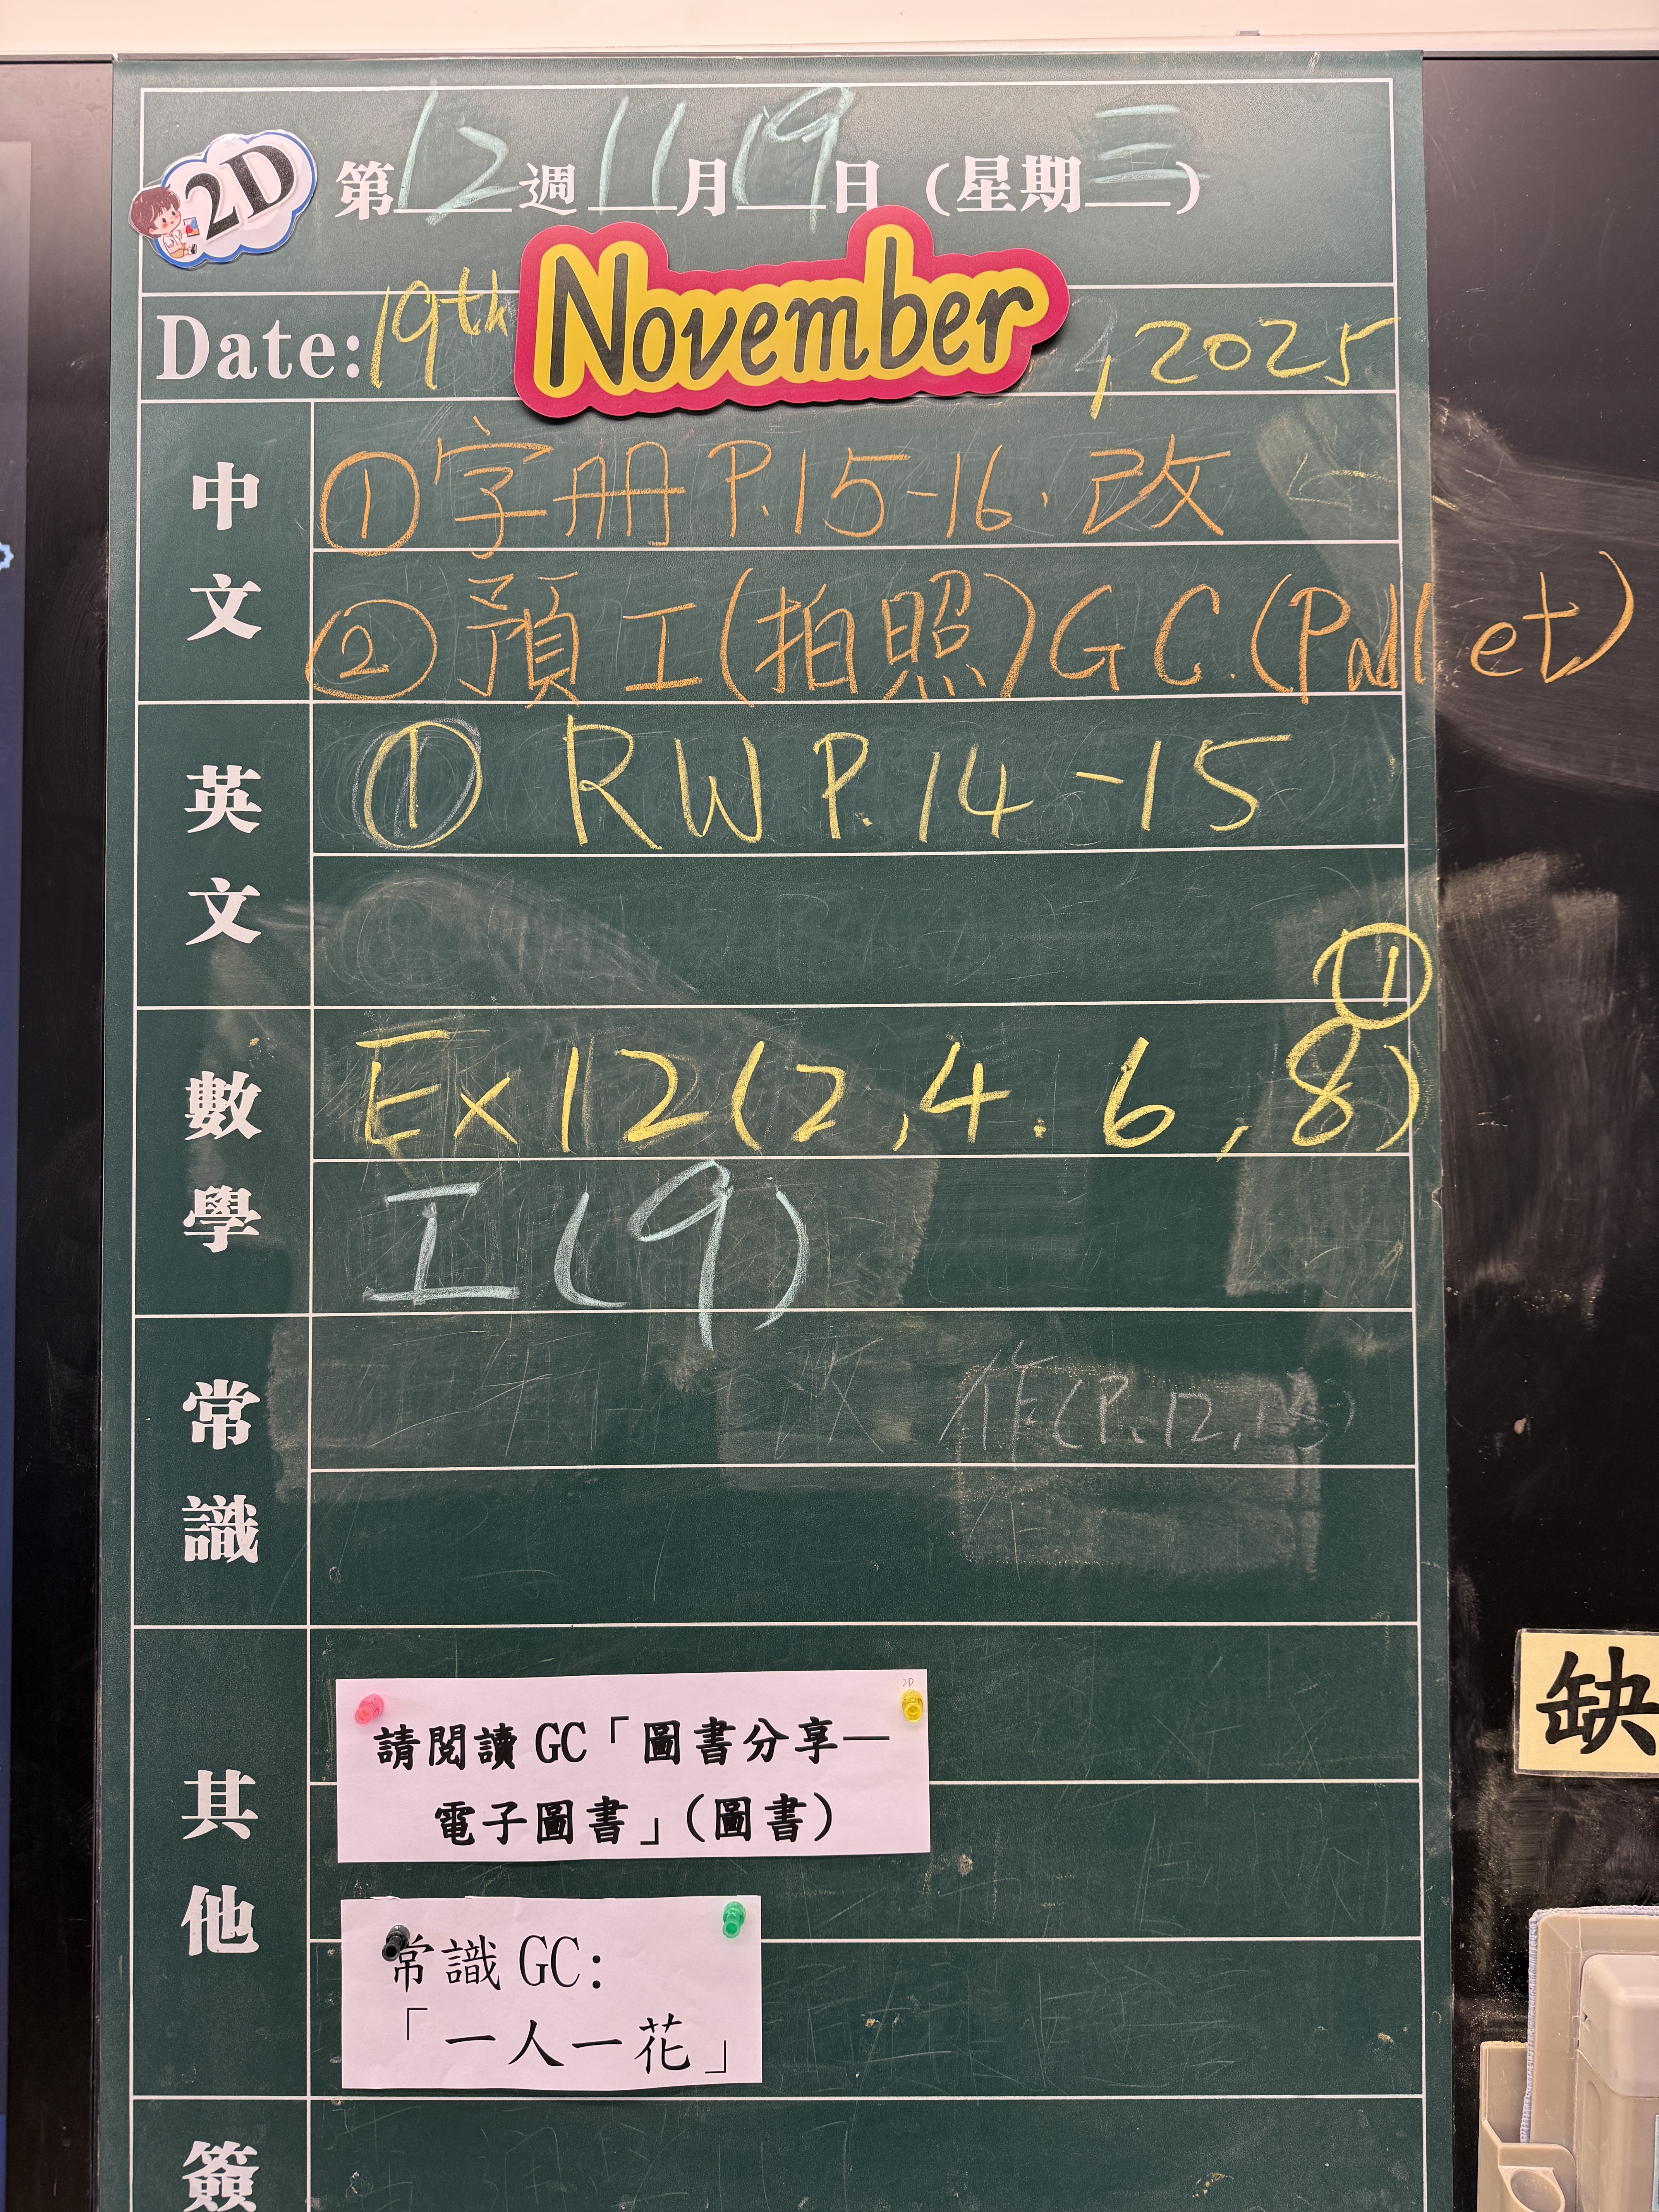 2D
第12週11月19日（星期三）
Date: 19th November, 2025
中文
① 字册 P.15-16. 改
② 預工(拍照)GC.(Padlet)
英文
① RW P.14-15
數學
①
Ex 12(2,4.6,8)
工(9)
常識
作(P.12,
其他
2D
請閱讀 GC「圖書分享—
電子圖書」（圖書）
常識 GC：
「一人一花」
簽
缺